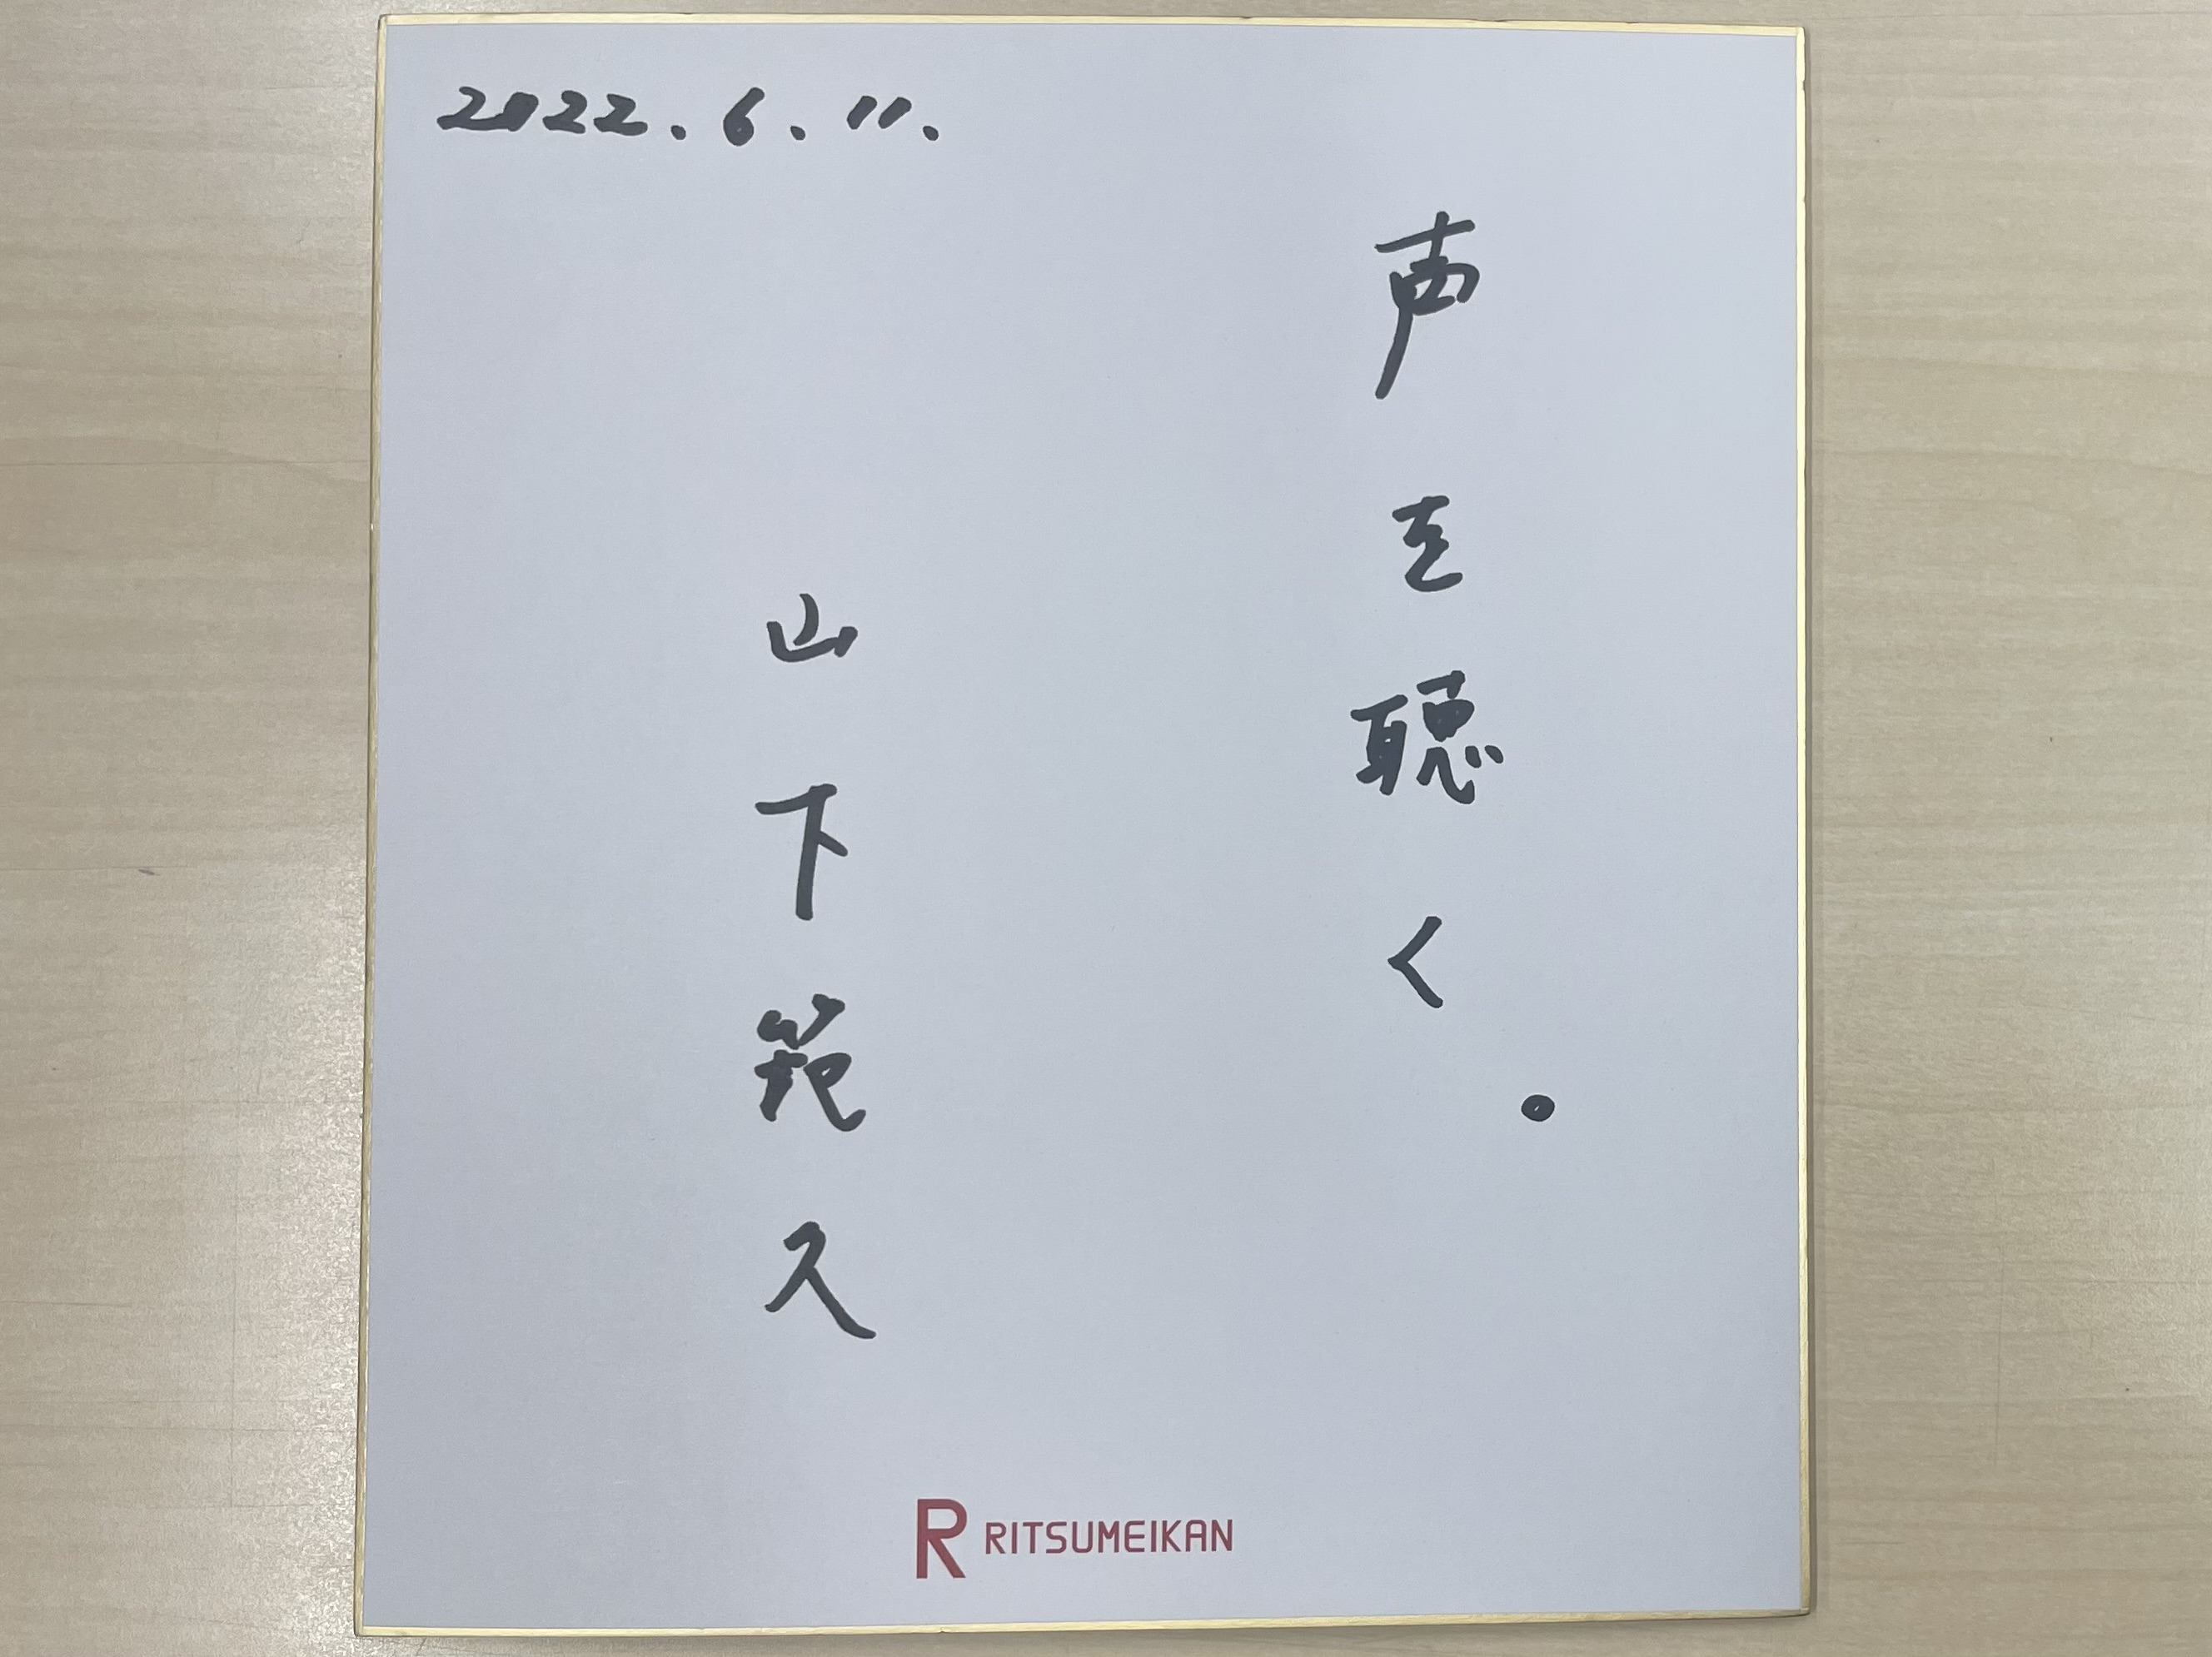 2022.6.11.
声を聴く。
山下範久
R RITSUMEIKAN